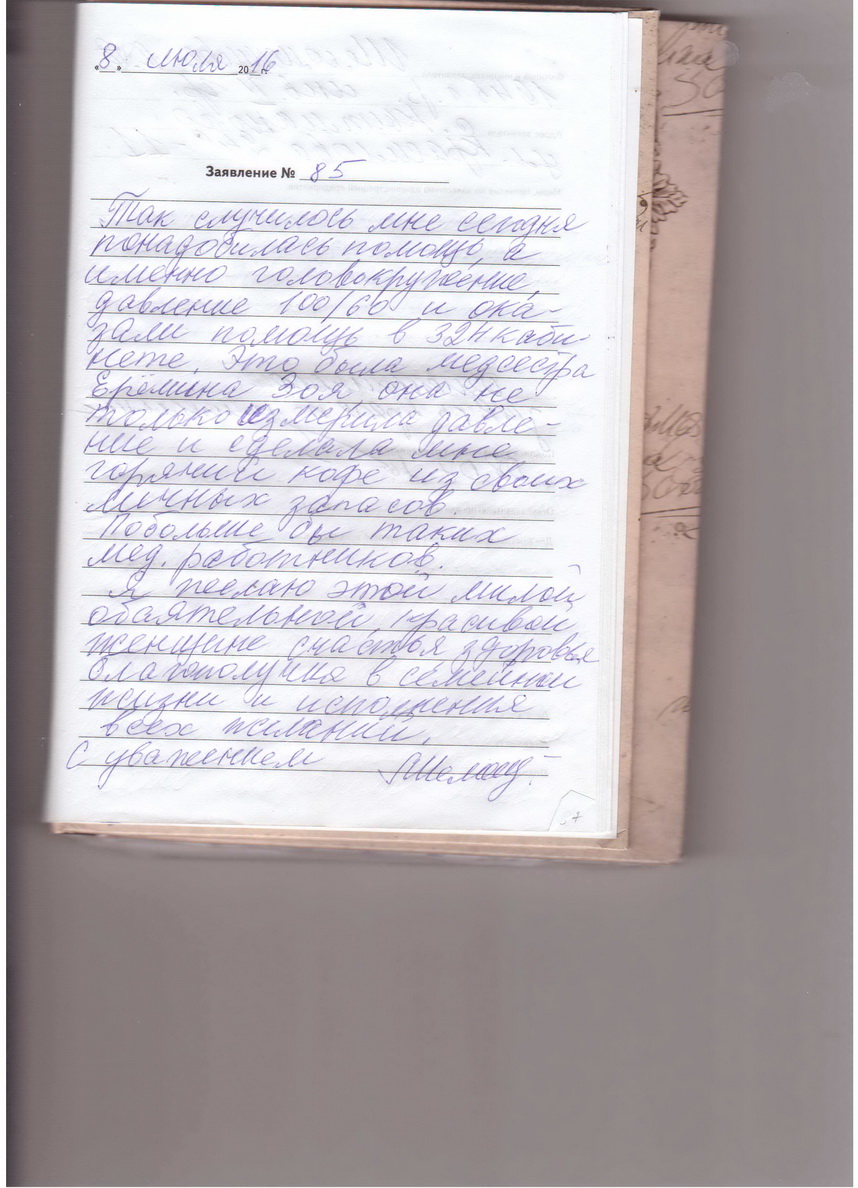 «8» июля 2016 г.
Заявление № 85
Так случилось мне сегодня
понадобилась помощь, а
именно головокружение,
давление 100/60 и ока-
зали помощь в 324 каби-
нете. Это была медсестра
Ерёмина Зоя она не
только измерила давле-
ние и сделала мне
горячий кофе из своих
личных запасов.
Побольше бы таких
мед. работников.
Я желаю этой милой
обаятельной, красивой
женщине счастья здоровья
благополучия в семейной
жизни и исполнения
всех желаний.
С уважением